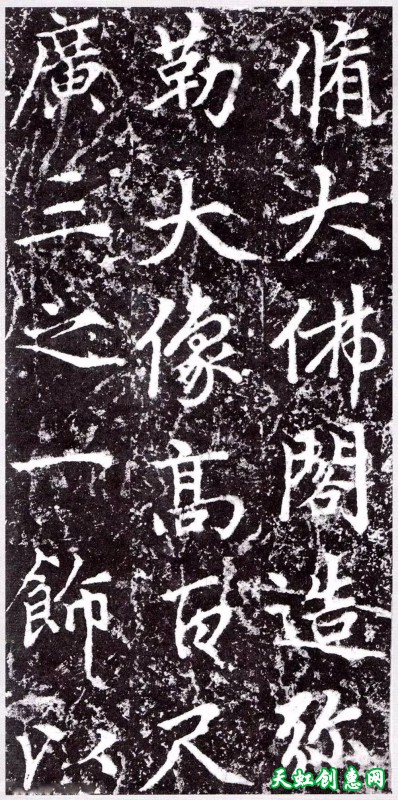 脩大佛閣造弥
勒大像高百尺
廣三之一飾以
天虹创惠网